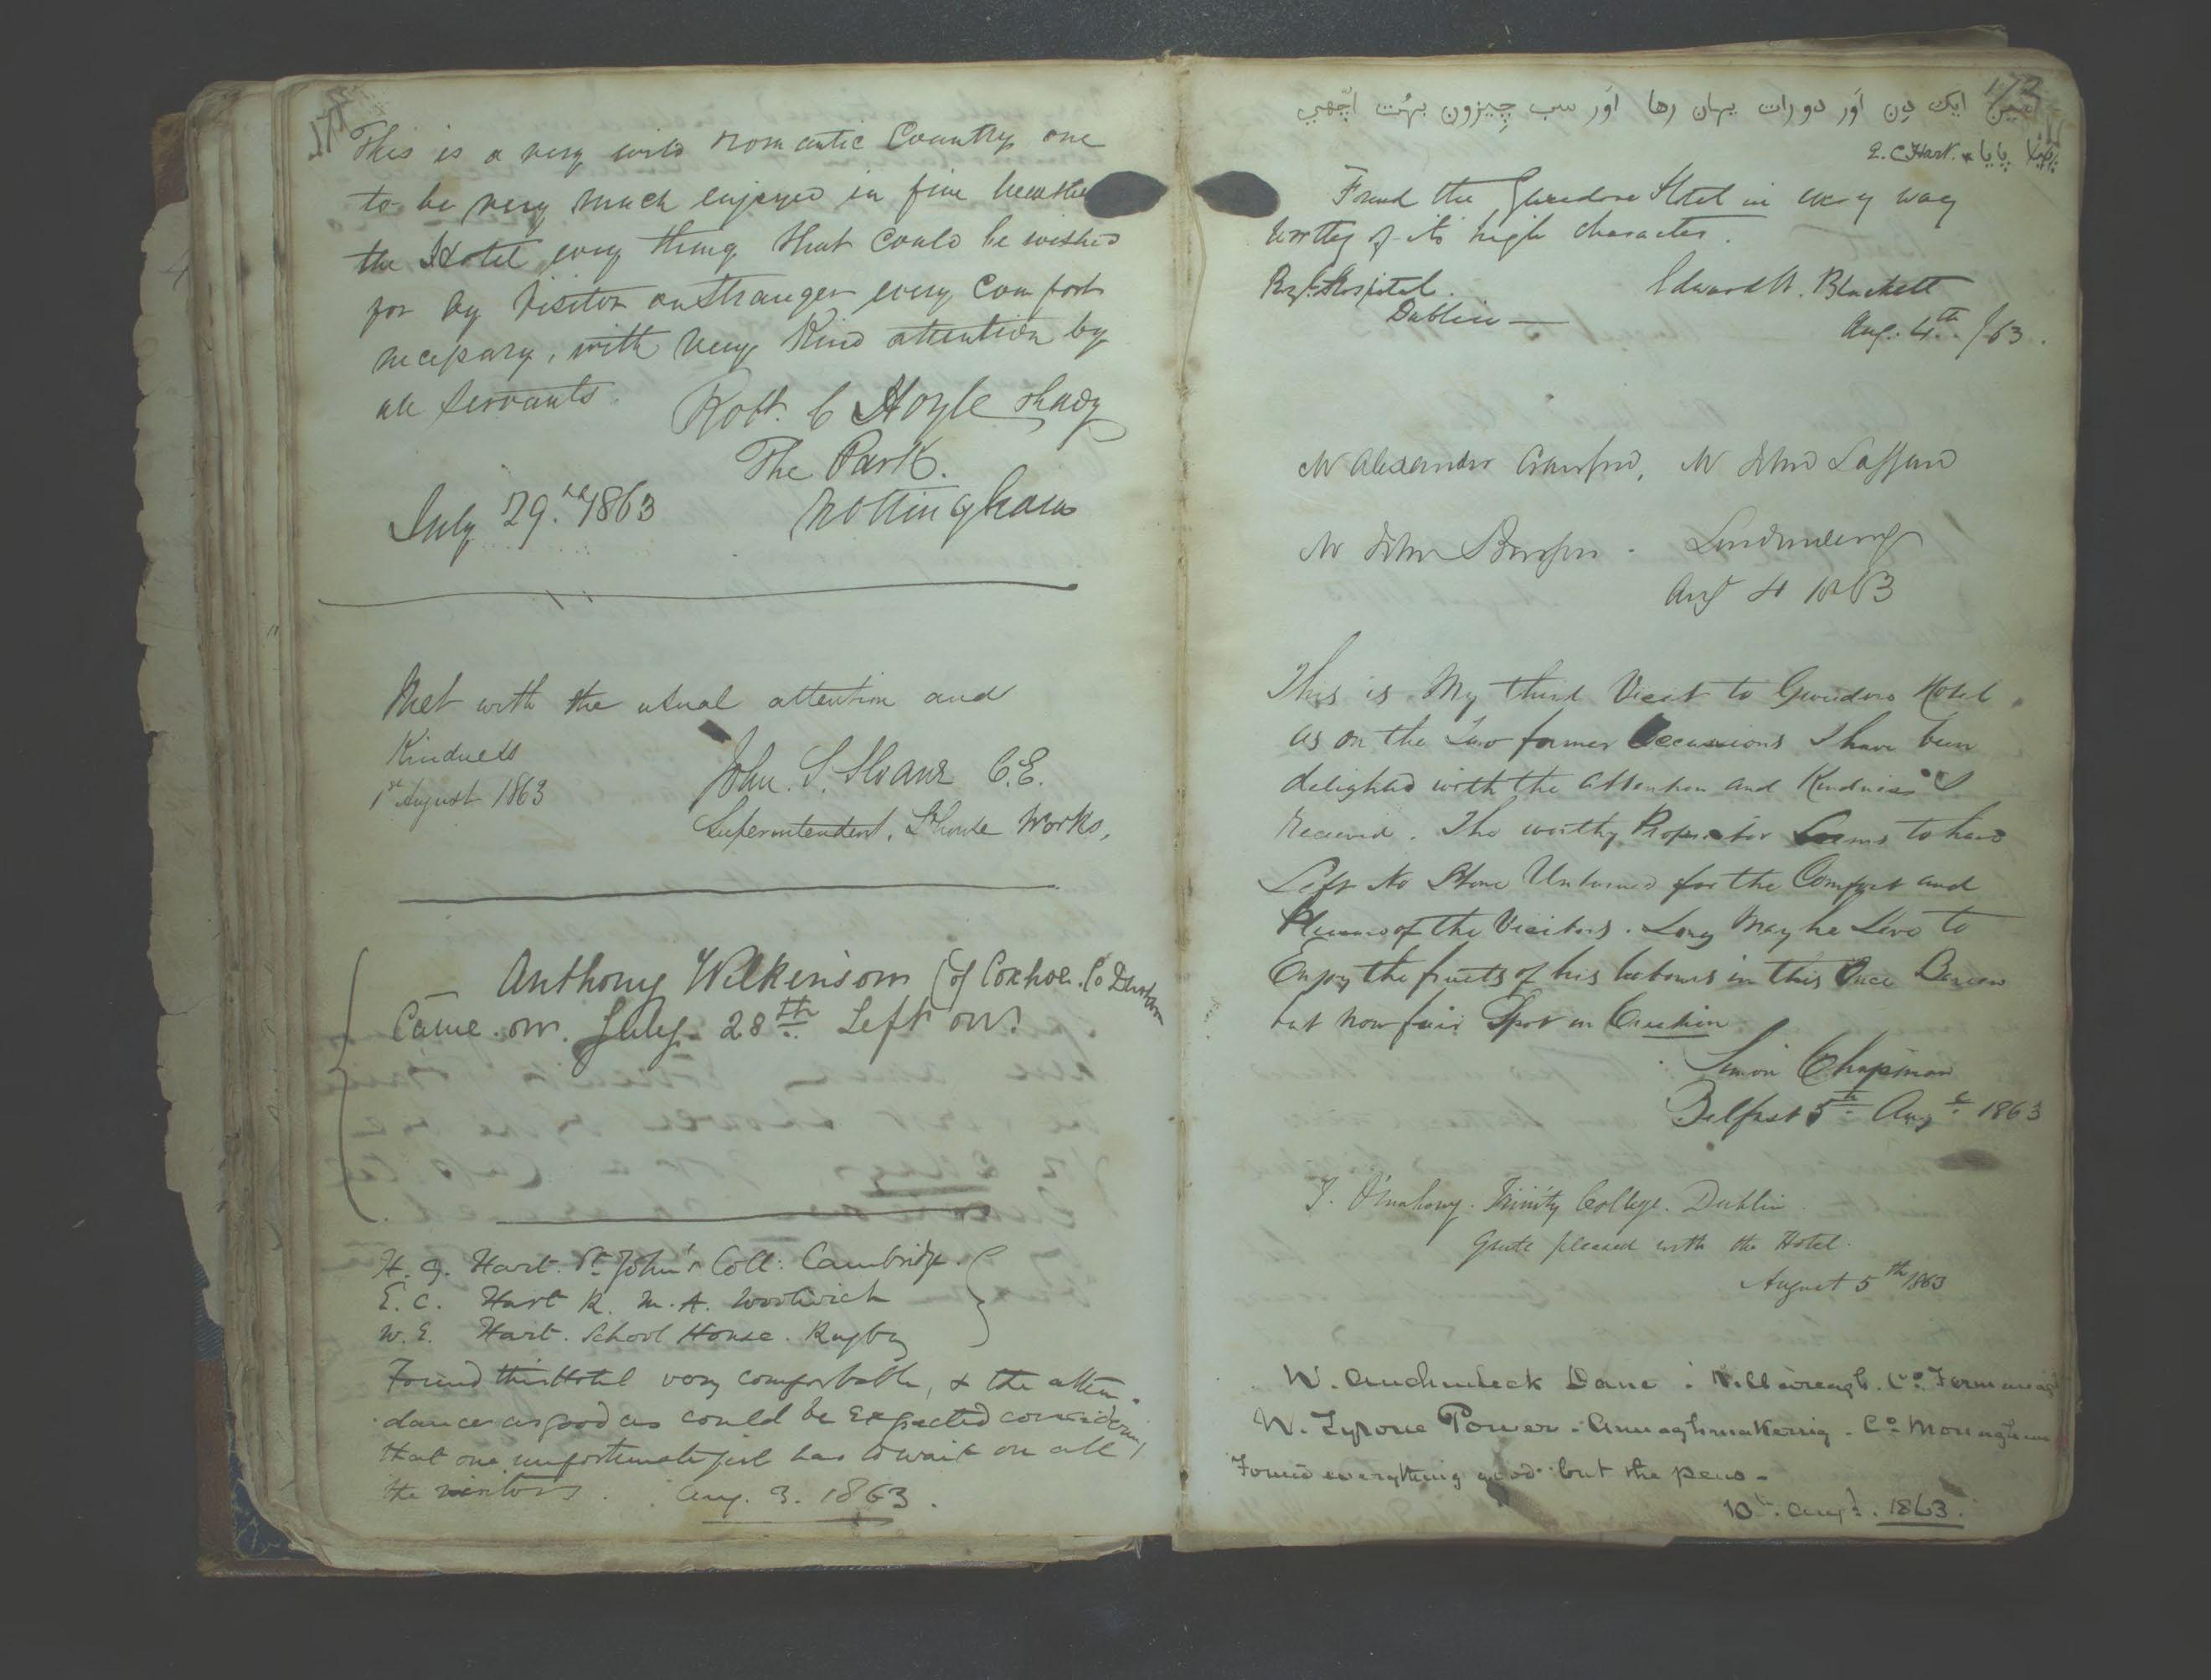 This is a very wild romantic Country one
to be very much enjoyed in fine weather
the Hotel every thing that could be wished
for by Visitor or Stranger every comfort
necessary, with very Kind attention by
all servants. Robt. C Hoyle
The Park.
July 29. 1863 Nottingham
Met with the usual attention and
Kindness
1st August 1863 John. S. Sloane C.E.
Superintendent, Lthouse Works,
Anthony Wilkinson (of Coxhoe. Co Durham
Came on. July 28th. Left on.
H. G. Hart. St. John's Coll: Cambridge.
E. C. Hart R. M. A. Woolwich
W. E. Hart. School House. Rugby
Found this Hotel very comfortable, & the atten-
dance as good as could be expected considering
that one unfortunate girl has to wait on all
the visitors. Aug. 3. 1863.
173
ایک دِن اَور دو رات یہان رہا اَور سب چیزون بہُت اچّھي
پایا E. C Hart.
Found the Gweedore Hotel in every way
worthy of its high character.
Hospital. Edward W. Blackett
Dublin — Aug. 4th. /63.
Mr Alexander Crawford, Mr John
Mr John Londonderry
Aug 4 1863
This is My third Visit to Gweedore Hotel
as on the two former Occasions I have been
delighted with the attention and Kindness I
Received. The worthy Proprietor Seems to have
Left No Stone Unturned for the Comfort and
Pleasure of the Visitors. Long May he Live to
Enjoy the fruits of his labours in this Once Barren
but now fair Spot in Creation
Simon Chapman
Belfast 5th Augt 1863
T. O'Mahony. Trinity College. Dublin.
Quite pleased with the Hotel.
August 5th 1863
W. Auchinleck Dane : Killyreagh. Co. Fermanagh
W. Tyrone Power : Annaghmakerrig - Co Monaghan
Found everything good but the pens -
10th. Augt. 1863.